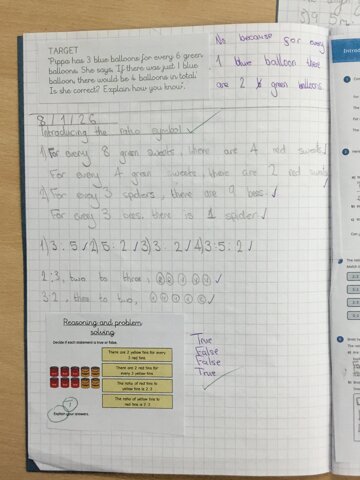 TARGET
"Pippa has 3 blue balloons for every 6 green
balloons. She says, 'If there was just 1 blue
balloon, there would be 4 balloons in total.'
Is she correct? Explain how you know.
No because for every
1 blue balloon there
are 2 green balloons
8/1/26
Introducing the ratio symbol
1) For every 8 green sweets, there are 4 red sweets
For every 4 green sweets, there are 2 red sweets
2) For every 3 spiders, there are 9 bees
For every 3 bees, there is 1 spider
1) 3:5 2) 5:2 3) 3:2 4) 3:5:2
2:3, two to three,
3:2, three to two,
Reasoning and problem
solving
Decide if each statement is true or false.
There are 2 yellow tins for every
3 red tins.
There are 2 red tins for
every 3 yellow tins.
The ratio of red tins to yellow
tins is 2:3
The ratio of yellow tins to
red tins is 2:3
Explain your answers.
True
False
False
True